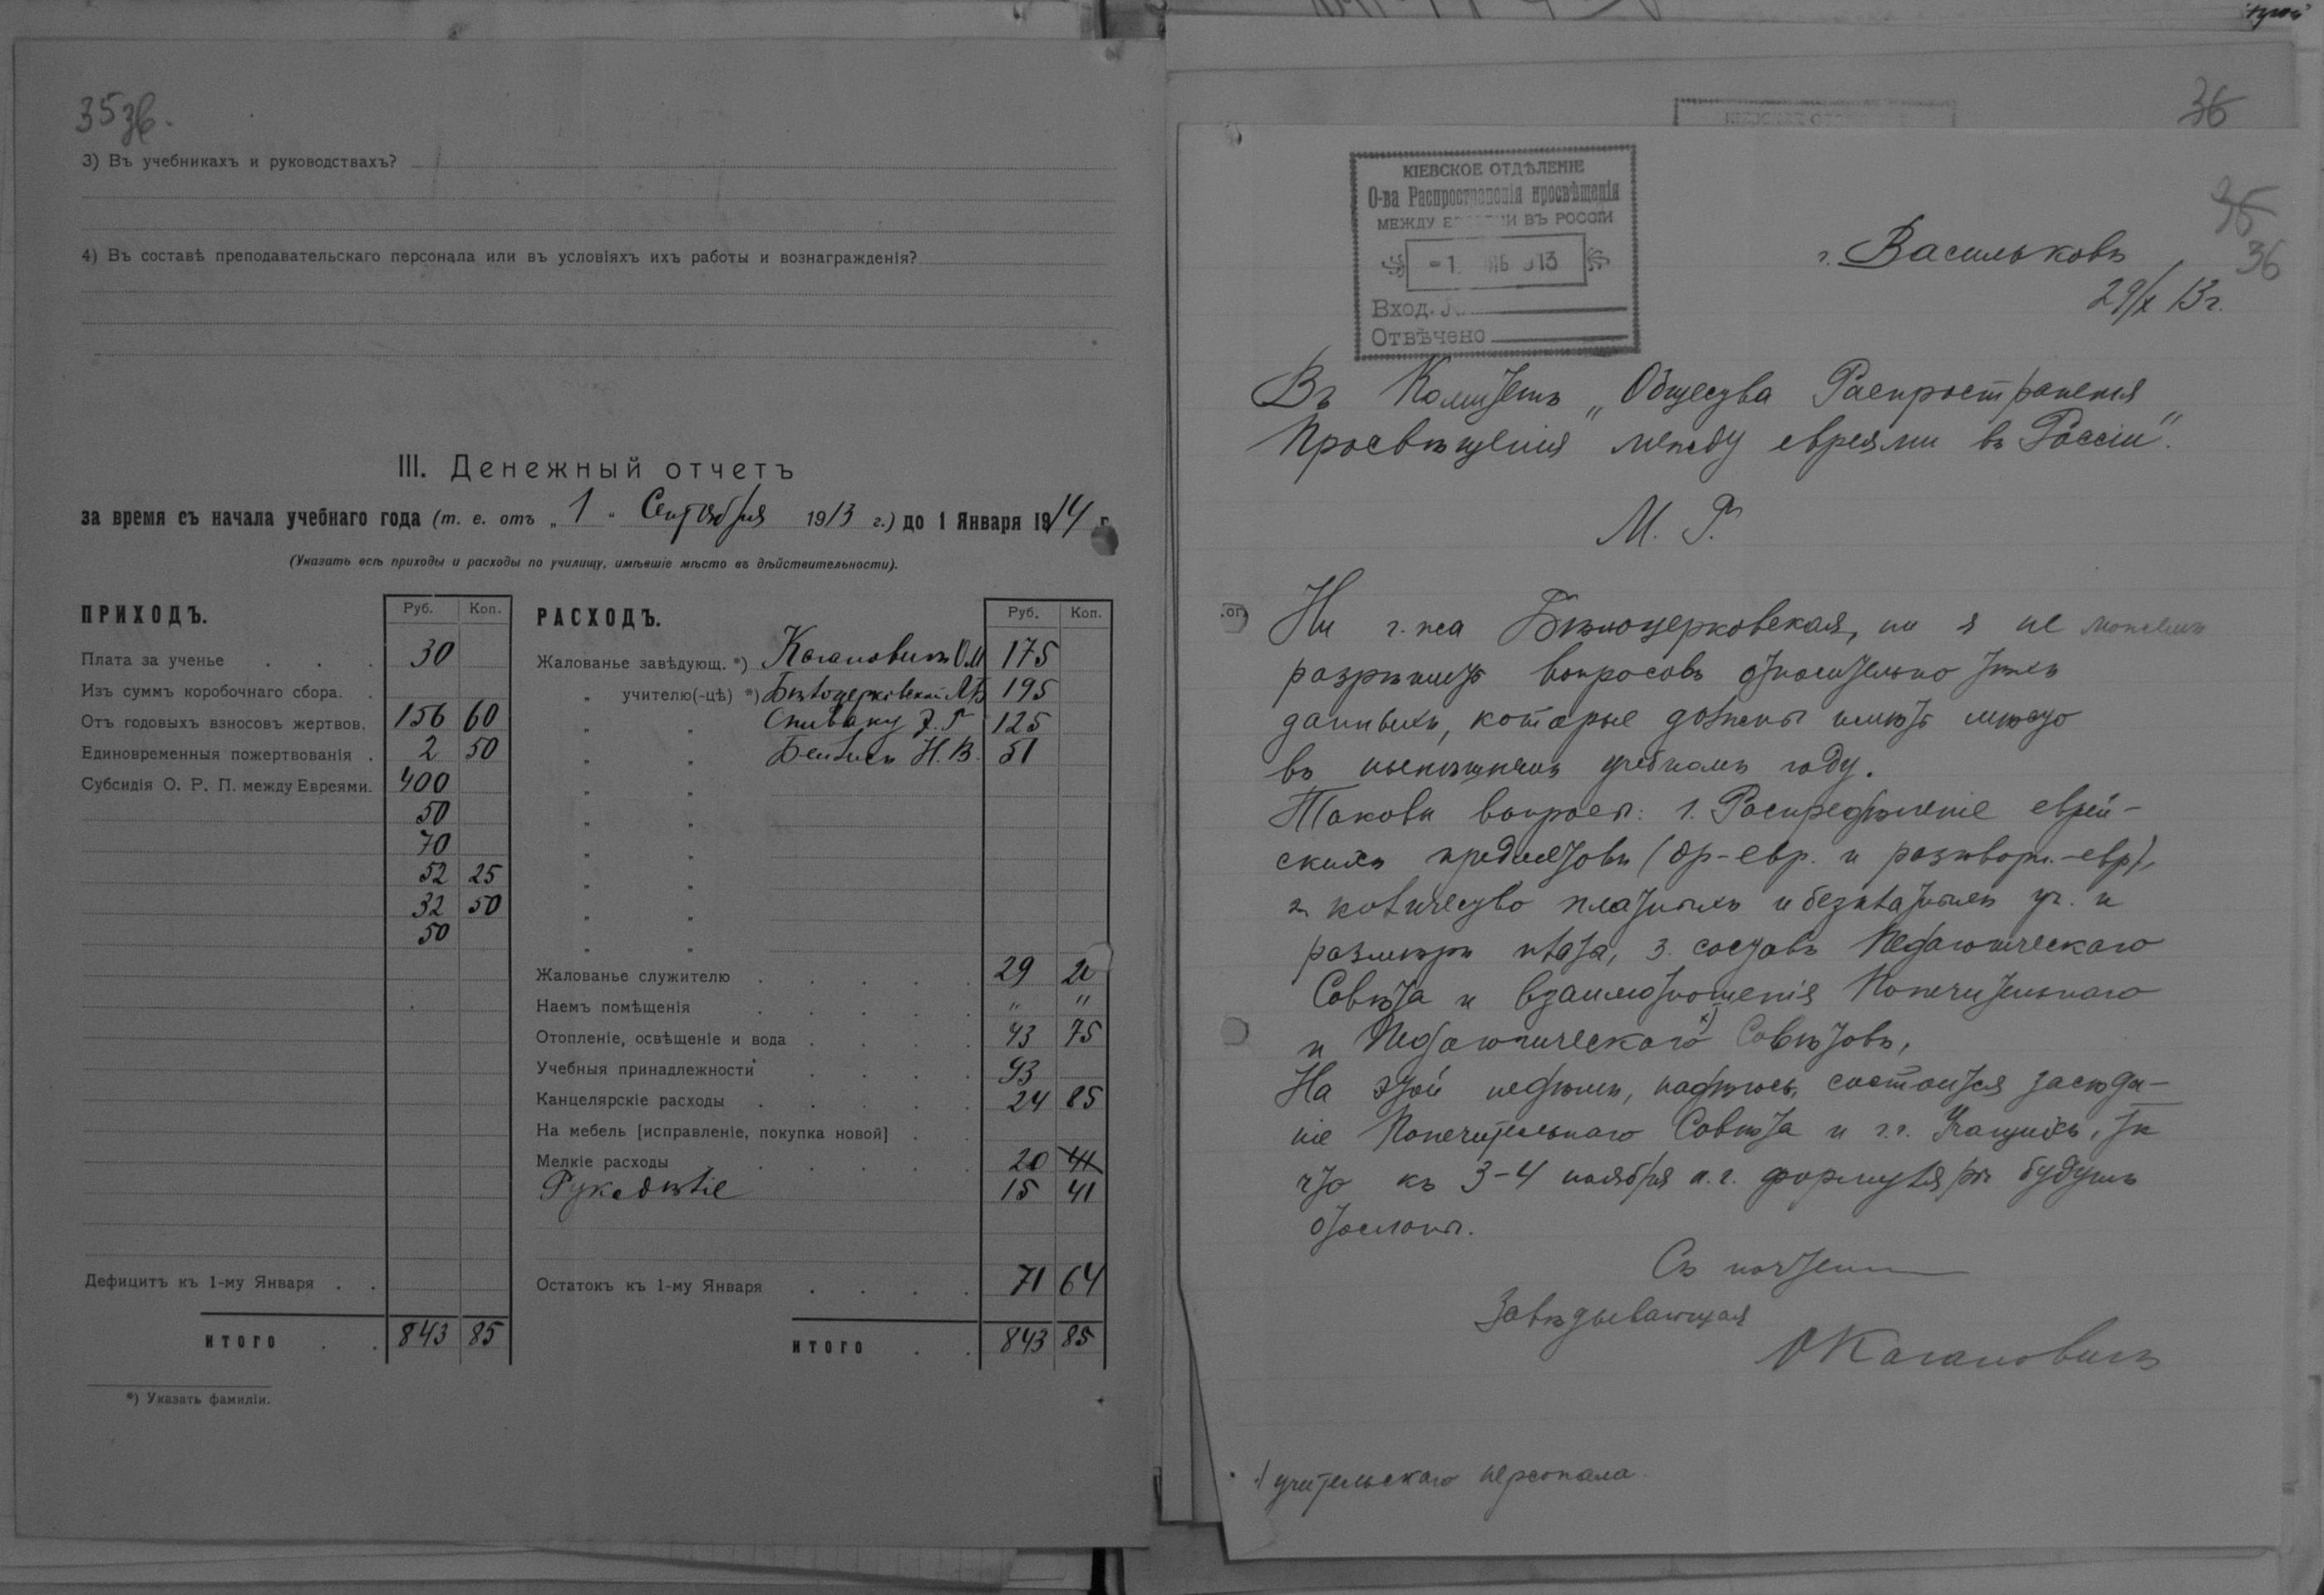 35 36.
3) Въ учебникахъ и руководствахъ?
4) Въ составѣ преподавательскаго персонала или въ условіяхъ ихъ работы и вознагражденія?
III. Денежный отчетъ
за время съ начала учебнаго года (т. е. отъ „ 1 " Сентября 1913 г.) до 1 Января 1914 г.
(Указать всѣ приходы и расходы по училищу, имѣвшіе мѣсто въ дѣйствительности).
ПРИХОДЪ. Руб. Коп.
Плата за ученье . . . 30
Изъ суммъ коробочнаго сбора. .
Отъ годовыхъ взносовъ жертвов. 156 60
Единовременныя пожертвованія . 2 50
Субсидія О. Р. П. между Евреями. 400
50
70
52 25
32 50
50
Дефицитъ къ 1-му Января . .
ИТОГО . . 843 85
*) Указать фамиліи.
РАСХОДЪ. Руб. Коп.
Жалованье завѣдующ. *) Кагановичъ О.М 175
„ учителю(-цѣ) *) Бѣлоцерковской 195
„ „ Спиваку 125
„ „ Н. В. 51
Жалованье служителю . . . . . 29 20
Наемъ помѣщенія . . . . . " "
Отопленіе, освѣщеніе и вода . . . . 43 75
Учебныя принадлежности . . . . 93
Канцелярскіе расходы . . . . . 24 85
На мебель [исправленіе, покупка новой] . .
Мелкіе расходы . . . . . 20 41
Рукодѣліе 15 41
Остатокъ къ 1-му Января . . . . 71 64
ИТОГО . . 843 85
36
КІЕВСКОЕ ОТДѢЛЕНІЕ
О-ва Распространенія просвѣщенія
МЕЖДУ ЕВРЕЯМИ ВЪ РОССІИ
-1 913
Вход. №
Отвѣчено
35
36
г. Васильковъ
29/X 13 г.
Въ Комитетъ „Общества Распространенія
Просвѣщенія между евреями въ Россіи".
М. Г.
Ни г-жа Бѣлоцерковская, ни я не можемъ
разрѣшить вопросовъ относительно тѣхъ
данныхъ, которые должны имѣть мѣсто
въ нынѣшнемъ учебномъ году.
Таковы вопросы: 1. Распредѣленіе еврей-
скихъ предметовъ (др-евр. и разговорн.-евр),
2. количество платныхъ и безплатныхъ уч. и
размѣръ платы, 3. составъ Педагогическаго
Совѣта и взаимоотношенія Попечительнаго
и Педагогическаго *) Совѣтовъ.
На этой недѣлѣ, надѣюсь, состоится засѣда-
ніе Попечительнаго Совѣта и г.г. Учащихъ, такъ
что къ 3-4 ноября с. г. формуляры будутъ
отосланы.
Съ почтен
Завѣдывающая
О Кагановичъ
*) учительскаго персонала